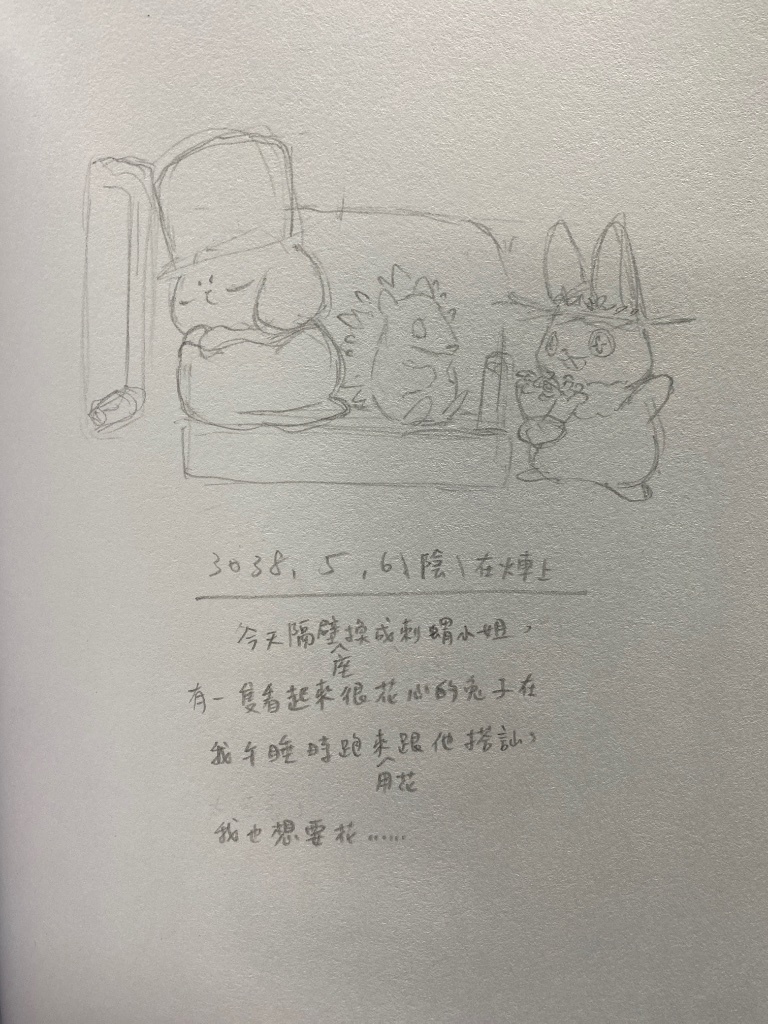 3038.5.6\陰\在火車上
今天隔壁座換成刺蝟小姐，
有一隻看起來很花心的兔子在
我午睡時跑來用花跟他搭訕，
我也想要花……